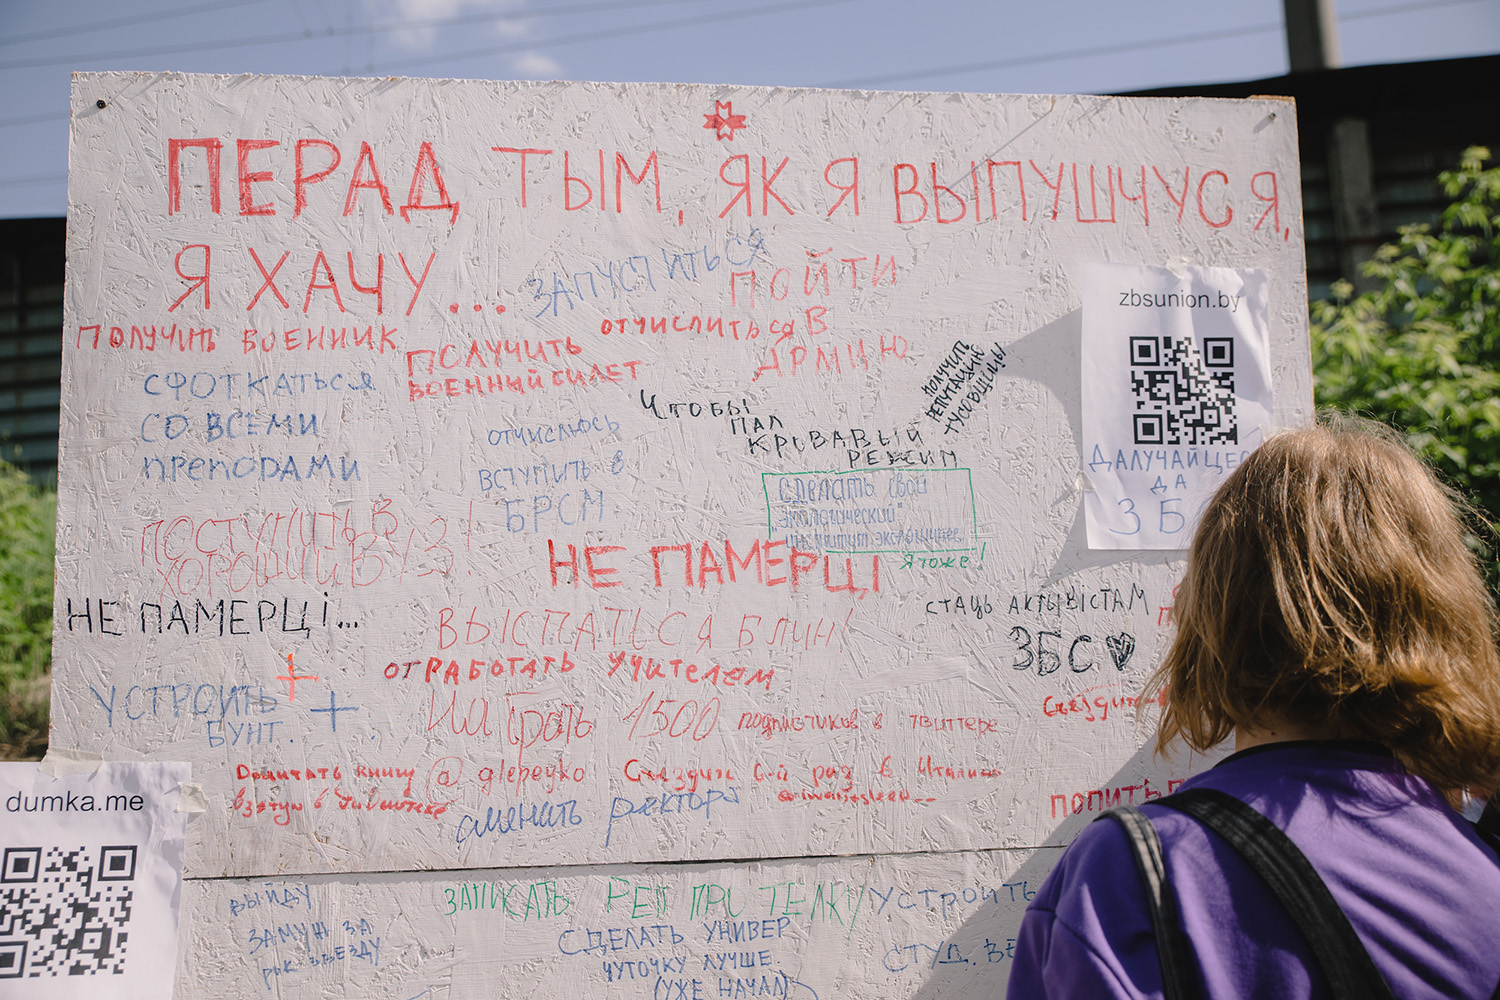 ПЕРАД ТЫМ, ЯК Я ВЫПУШЧУСЯ,
Я ХАЧУ...
ЗАПУСТИТЬСЯ
ПОЙТИ
В
АРМИЮ
ОТЧИСЛИТЬСЯ
ПОЛУЧИТЬ ВОЕННИК
ПОЛУЧИТЬ
ВОЕННЫЙ БИЛЕТ
СФОТКАТЬСЯ
СО ВСЕМИ
ПРЕПОДАМИ
ПОЛУЧИТЬ
РЕПУТАЦИЮ
ТУСОВЩИЦЫ
ЧТОБЫ
ПАЛ
КРОВАВЫЙ
РЕЖИМ
ОТЧИСЛЮСЬ
ВСТУПИТЬ В
БРСМ
сделать свой
"экологический"
институт экологичнее
Я тоже!
zbsunion.by
ДАЛУЧАЙЦЕС
ДА
ЗБ
ПОСТУПИТЬ В
ХОРОШИЙ ВУЗ!
НЕ ПАМЕРЦІ
НЕ ПАМЕРЦІ...
ВЫСПАТЬСЯ БЛИН!
СТАЦЬ АКТЫВІСТАМ
ЗБС
ОТРАБОТАТЬ УЧИТЕЛЕМ
УСТРОИТЬ
БУНТ.
Набрать 1500 подписчиков в твиттере
Съездить
Дочитать книгу @glepeyko
взятую в
Съездить в
сменить ректора
ПОПИТЬ
dumka.me
ВЫЙДУ
ЗАМУЖ ЗА
РОК ЗВЕЗДУ
ЗАПИСАТЬ РЕП ПРО ТЕЛКУ
УСТРОИТЬ
СТУД. ВЕ
СДЕЛАТЬ УНИВЕР
ЧУТОЧКУ ЛУЧШЕ.
(УЖЕ НАЧАЛ)